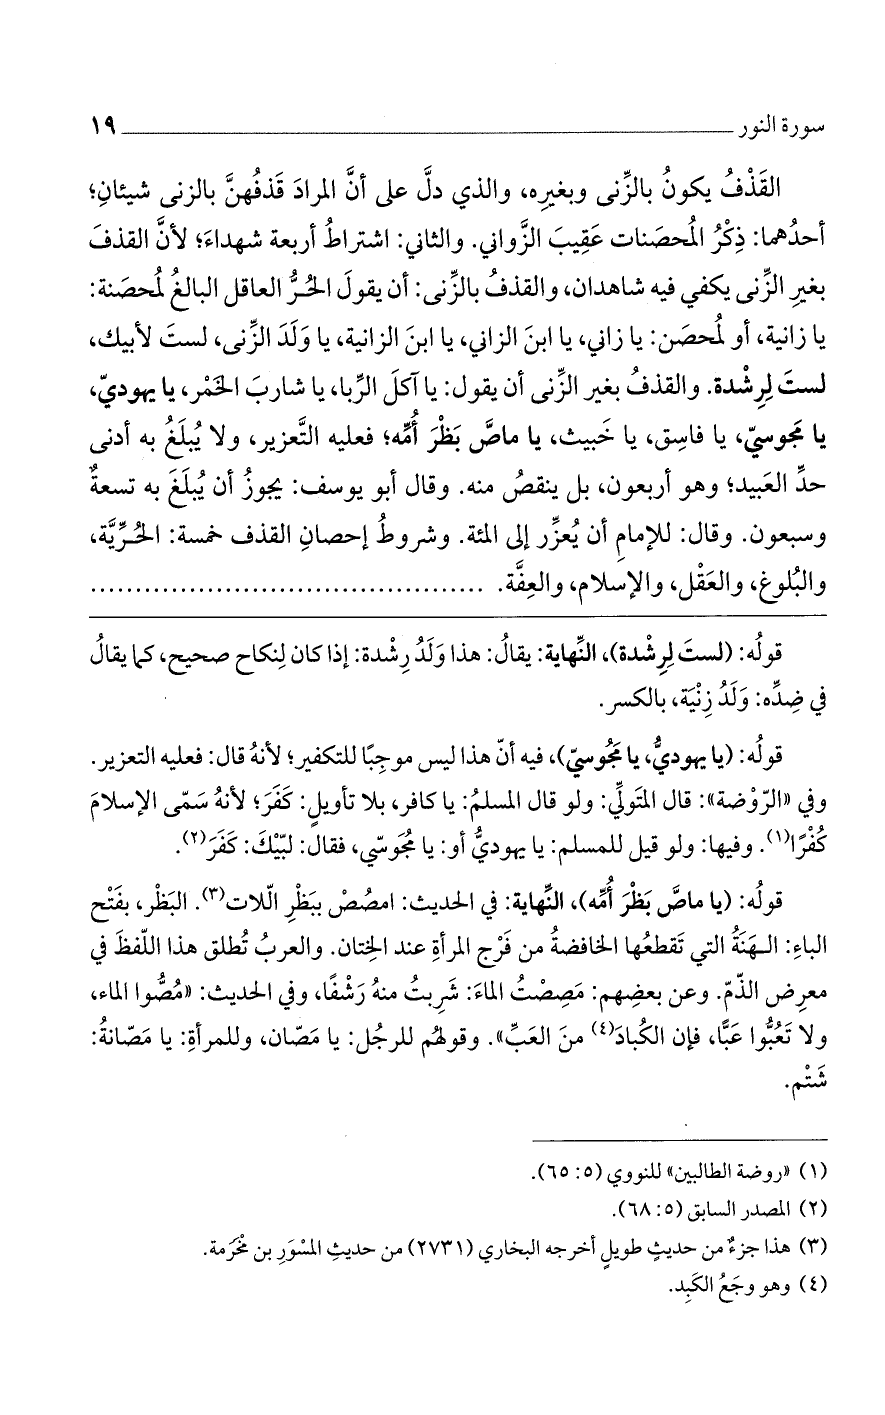 سورة النور ١٩
القَذْفُ يكونُ بالزِّنى وبغيرِه، والذي دلَّ على أنَّ المرادَ قَذفُهنَّ بالزنى شيئانِ؛
أحدُهما: ذِكْرُ المُحصَنات عَقِيبَ الزَّواني. والثاني: اشتراطُ أربعة شهداءَ؛ لأنَّ القذفَ
بغيرِ الزِّنى يكفي فيه شاهدان، والقذفُ بالزِّنى: أن يقولَ الحُرُّ العاقل البالغُ لمُحصَنة:
يا زانية، أو لمُحصَن: يا زاني، يا ابنَ الزاني، يا ابنَ الزانية، يا وَلَدَ الزِّنى، لستَ لأبيك،
لستَ لِرِشْدة. والقذفُ بغير الزِّنى أن يقول: يا آكلَ الرِّبا، يا شاربَ الخَمْر، يا يهوديّ،
يا مَجوسيّ، يا فاسِق، يا خَبيث، يا ماصَّ بَظْرَ أُمِّه؛ فعليه التَّعزير، ولا يُبلَغُ به أدنى
حدِّ العَبيد؛ وهو أربعون، بل ينقصُ منه. وقال أبو يوسف: يجوزُ أن يُبلَغَ به تسعةٌ
وسبعون. وقال: للإمامِ أن يُعزِّر إلى المئة. وشروطُ إحصانِ القذف خمسة: الحُرِّيَّة،
والبُلوغ، والعَقْل، والإسلام، والعِفَّة. ............................................
قولُه: (لستَ لِرِشْدة)، النِّهاية: يقالُ: هذا وَلَدُ رِشْدة: إذا كان لِنكاح صحيح، كما يقالُ
في ضِدِّه: وَلَدُ زِنْيَة، بالكسر.
قولُه: (يا يهوديُّ، يا مَجُوسيّ)، فيه أنّ هذا ليس موجِبًا للتكفير؛ لأنهُ قال: فعليه التعزير.
وفي «الرّوْضة»: قال المتَولِّي: ولو قال المسلمُ: يا كافر، بلا تأويلٍ: كَفَرَ؛ لأنهُ سَمّى الإسلامَ
كُفْرًا(١). وفيها: ولو قيل للمسلم: يا يهوديُّ أو: يا مَجُوسّي، فقال: لبّيْكَ: كَفَرَ(٢).
قولُه: (يا ماصَّ بَظْرَ أُمِّه)، النِّهاية: في الحديث: امصُصْ ببَظْرِ الّلات(٣). البَظْر، بفَتْح
الباءِ: الـهَنَةُ التي تَقطعُها الخافضةُ من فَرْج المرأةِ عند الخِتان. والعربُ تُطلق هذا اللّفظَ في
معرِض الذّمّ. وعن بعضِهم: مَصِصْتُ الماءَ: شَرِبتُ منهُ رَشْفًا، وفي الحديث: «مُصُّوا الماء،
ولا تَعُبُّوا عَبًّا، فإن الكُبادَ(٤) منَ العَبِّ». وقولهُم للرجُل: يا مَصّان، وللمرأةِ: يا مَصّانةُ:
شَتْم.
(١) «روضة الطالبين» للنووي (٥: ٦٥).
(٢) المصدر السابق (٥: ٦٨).
(٣) هذا جزءٌ من حديثٍ طويلٍ أخرجه البخاري (٢٧٣١) من حديثِ المسْوَرِ بن مخْرَمة.
(٤) وهو وجَعُ الكَبِد.